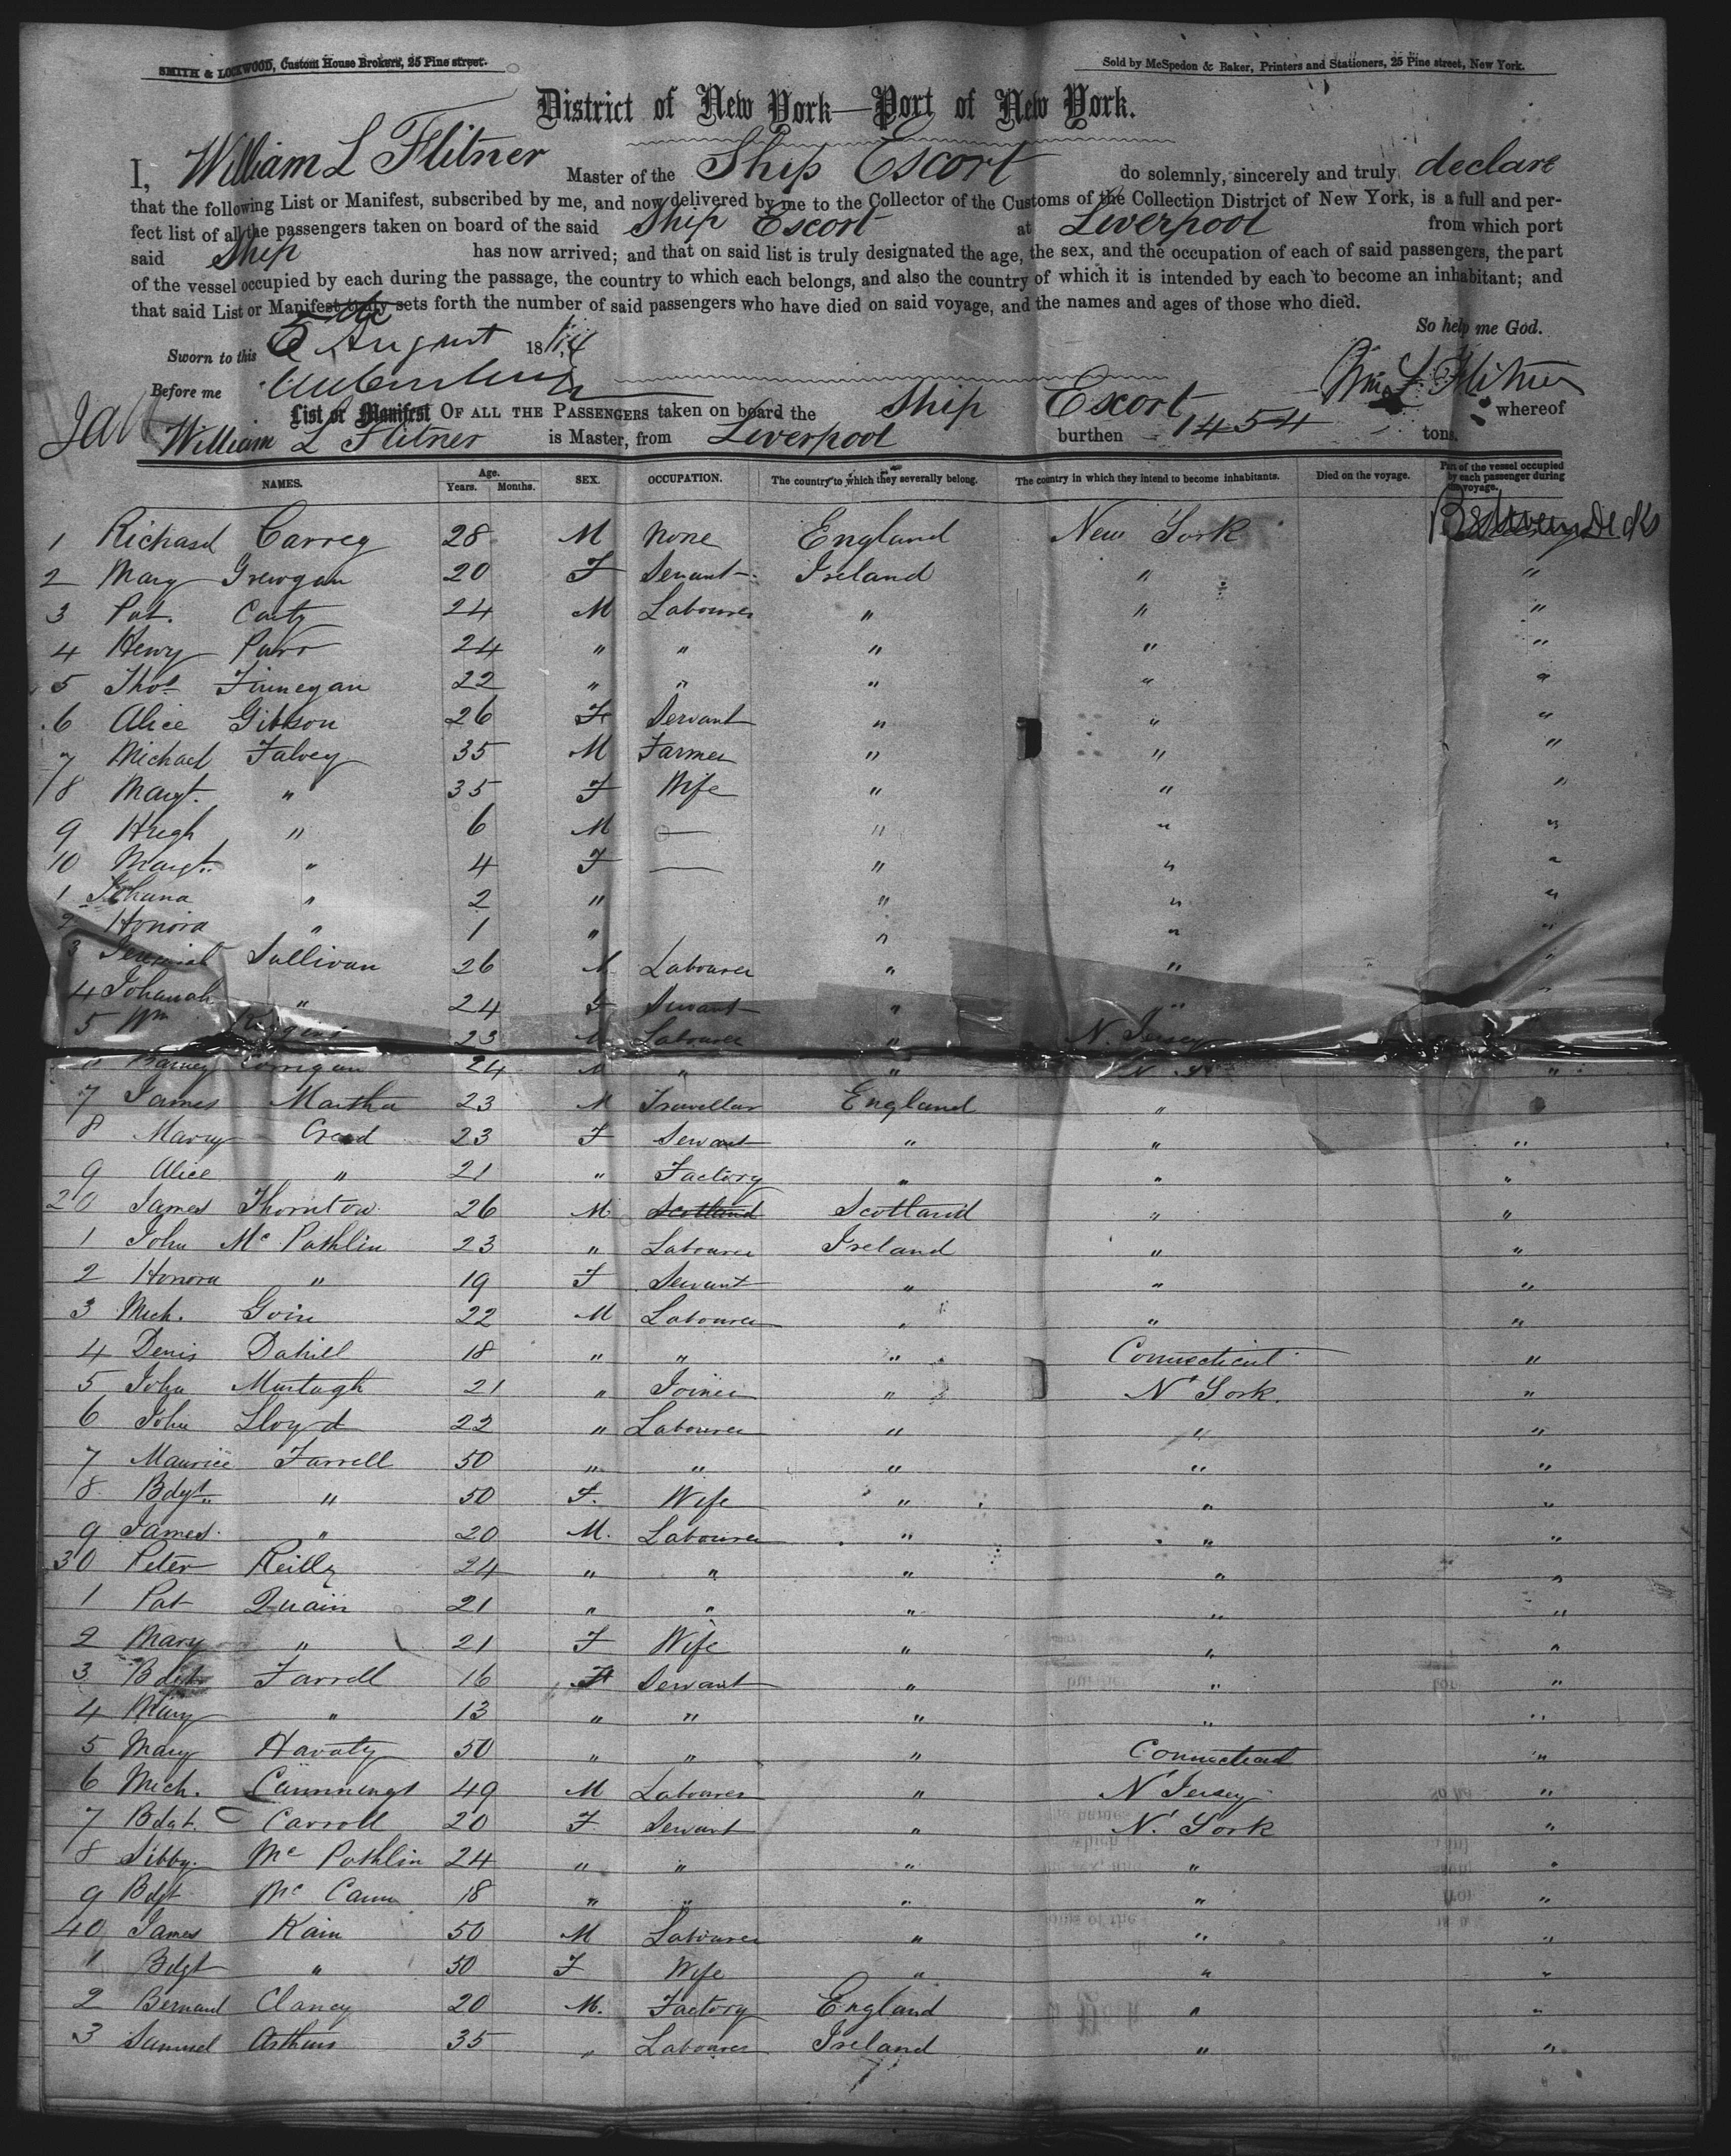 SMITH & LOCKWOOD, Custom House Brokers, 25 Pine street.
Sold by McSpedon & Baker, Printers and Stationers, 25 Pine street, New York.
District of New York—Port of New York.
I, William L Flitner Master of the Ship Escort do solemnly, sincerely and truly declare
that the following List or Manifest, subscribed by me, and now delivered by me to the Collector of the Customs of the Collection District of New York, is a full and per-
fect list of all the passengers taken on board of the said Ship Escort at Liverpool from which port
said Ship has now arrived; and that on said list is truly designated the age, the sex, and the occupation of each of said passengers, the part
of the vessel occupied by each during the passage, the country to which each belongs, and also the country of which it is intended by each to become an inhabitant; and
that said List or Manifest truly sets forth the number of said passengers who have died on said voyage, and the names and ages of those who died.
So help me God.
Sworn to this August 18
Before me
Wm L Flitner
List or Manifest OF ALL THE PASSENGERS taken on board the Ship Escort whereof
William L Flitner is Master, from Liverpool burthen 1454 tons.
NAMES. Age. Years. Months. SEX. OCCUPATION. The country to which they severally belong. The country in which they intend to become inhabitants. Died on the voyage. Part of the vessel occupied by each passenger during the voyage.
1 Richard Carreg 28 M None England New York Between Decks
2 Mary Grewgan 20 F Servant Ireland " "
3 Pat. Carty 24 M Labourer " " "
4 Henry Parr 24 " " " " "
5 Thos Finnegan 22 " " " " "
6 Alice Gibson 26 F Servant " " "
7 Michael Falvey 35 M Farmer " " "
8 Margt. " 35 F Wife " " "
9 Hugh " 6 M — " " "
10 Margt. " 4 F — " " "
1 Johana " 2 " " " "
2 Honora " 1 " " " "
3 Jeremiah Sullivan 26 M Labourer " " "
4 Johanah " 24 F Servant " " "
5 Wm 23 M Labourer " N. Jersey
Barney Corrigan 24 M " " N. Y. "
7 James Martha 23 M Traveller England " "
8 Mary Creed 23 F Servant " " "
9 Alice " 21 " Factory " " "
20 James Thornton 26 M Scotland Scotland " "
1 John Mc Pathlin 23 " Labourer Ireland " "
2 Honora " 19 F Servant " " "
3 Mich. Goin 22 M Labourer " " "
4 Denis Dahill 18 " " " Connecticut "
5 John Murtagh 21 " Joiner " N York. "
6 John Lloyd 22 " Labourer " " "
7 Maurice Farrell 50 " " " " "
8 Bdgt. " 50 F. Wife " " "
9 James " 20 M. Labourer " " "
30 Peter Reilly 24 " " " " "
1 Pat Quain 21 " " " " "
2 Mary " 21 F Wife " " "
3 Bdgt Farrell 16 F Servant " " "
4 Mary " 13 " " " " "
5 Mary Havaty 50 " " " Connecticut "
6 Mich. Cummings 49 M Labourer " N Jersey "
7 Bdgt. Carroll 20 F Servant " N. York "
8 Sibby. Mc Pathlin 24 " " " " "
9 Bdgt Mc Cann 18 " " " " "
40 James Kain 50 M Labourer " " "
1 Bdgt " 50 F Wife " " "
2 Bernard Clancy 20 M. Factory England " "
3 Samuel Arthurs 35 " Labourer Ireland " "